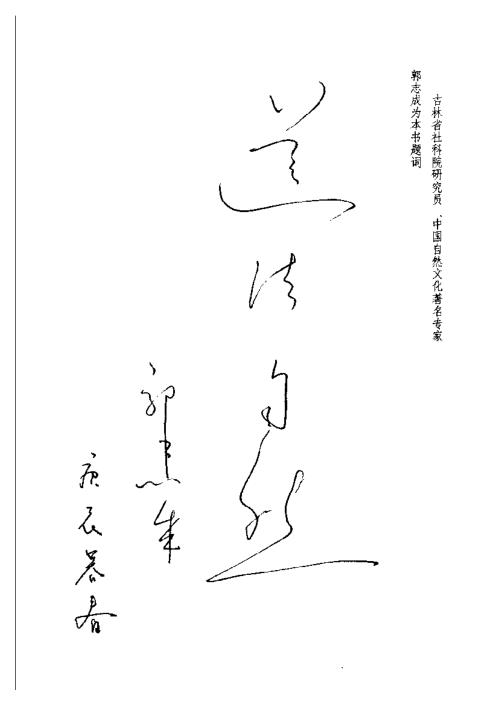 吉林省社科院研究员、中国自然文化著名专家
郭志成为本书题词
道法自然
郭志成
庚辰暮春